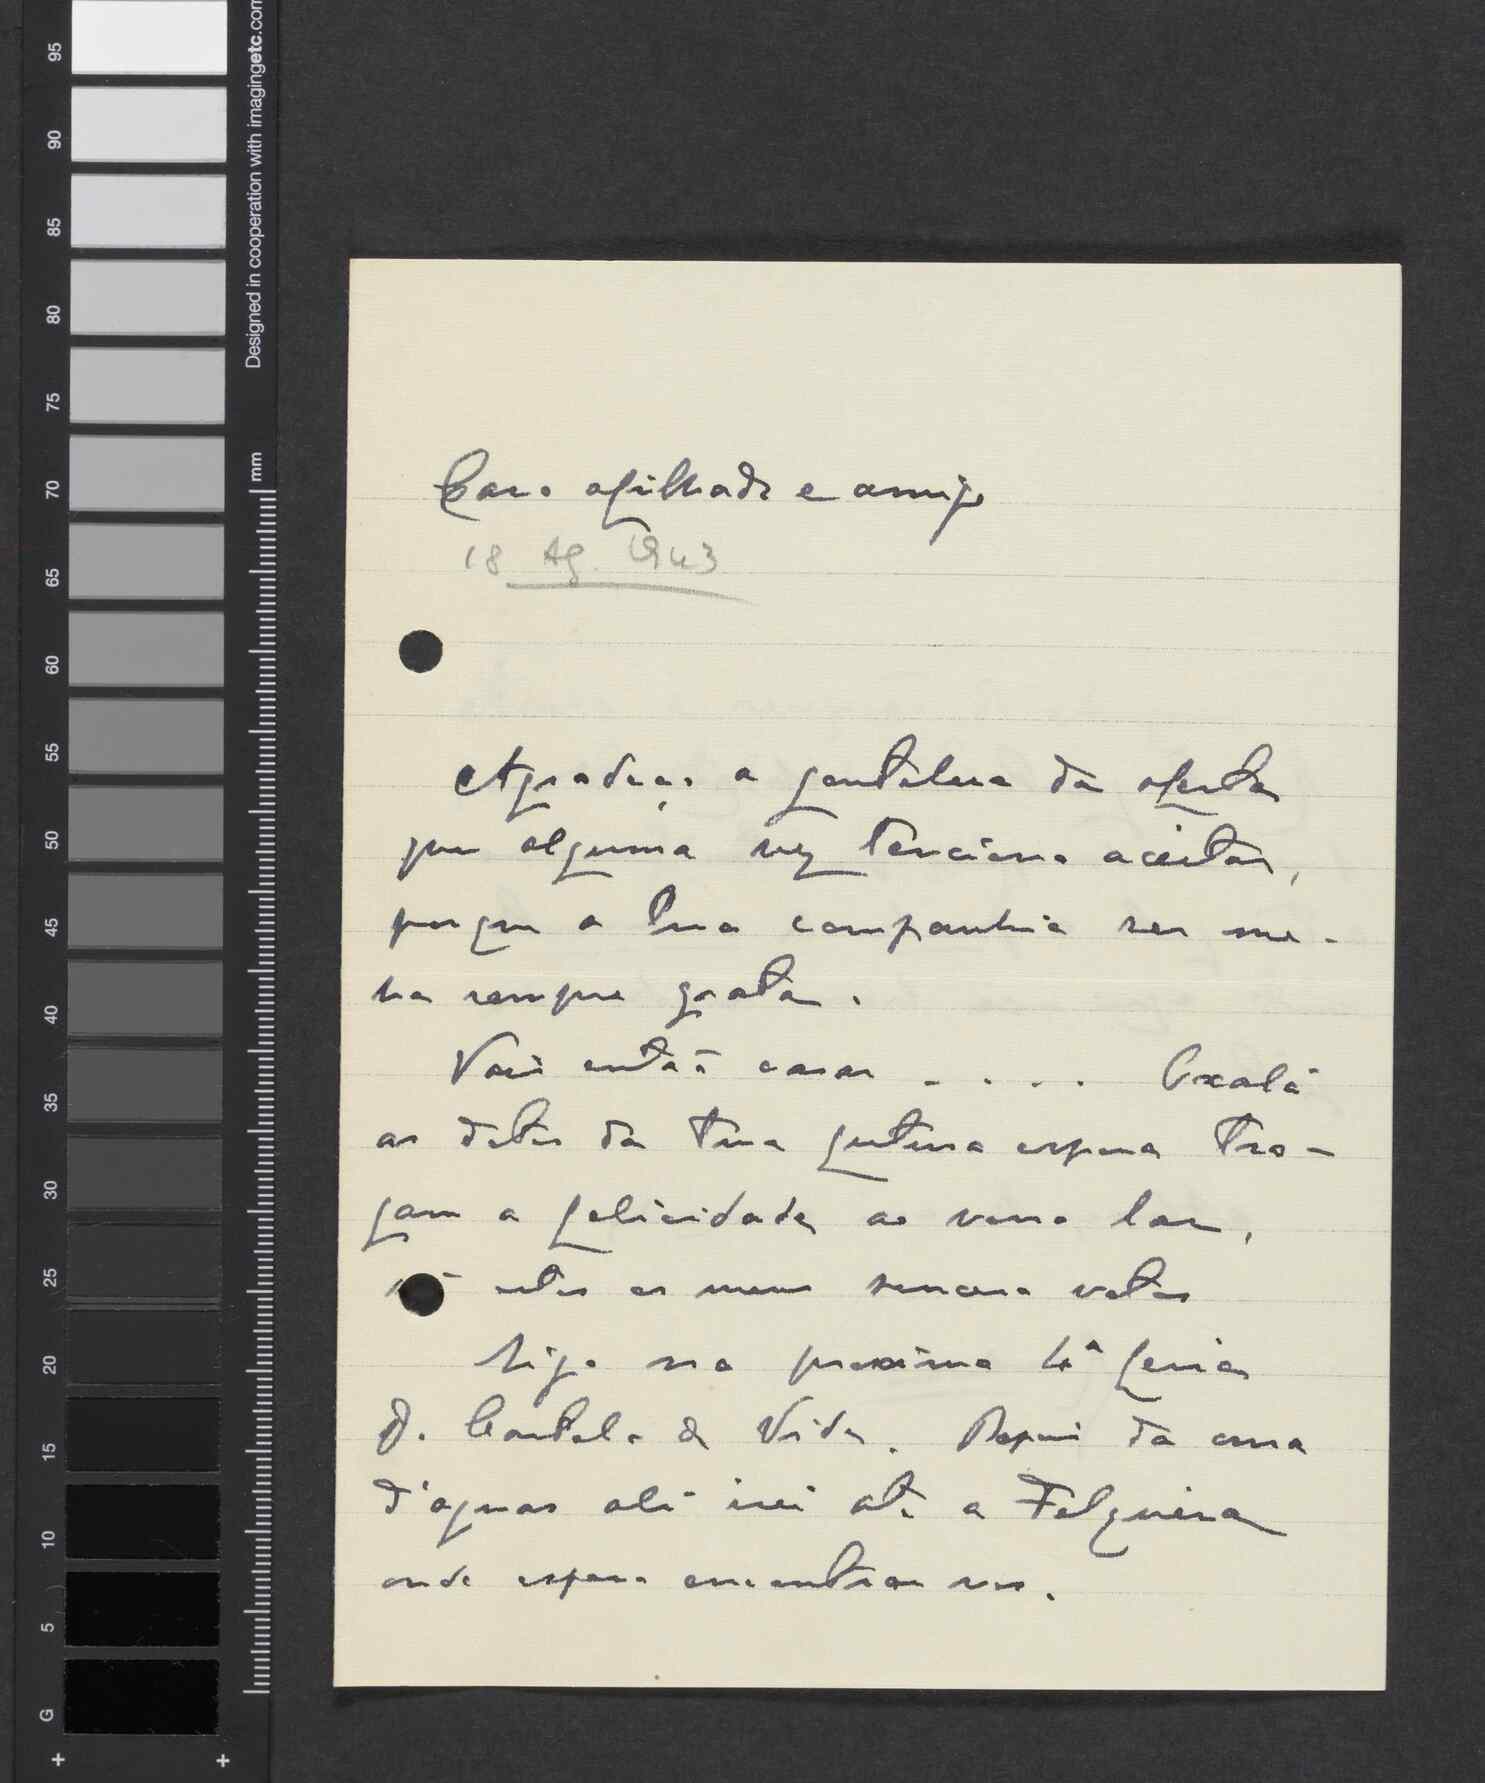 Caro afilhado e amigo
18 Ag. 1943
Agradeço a gentileza da oferta
que alguma vez tenciono aceitar,
porque a tua companhia ser me-
ha sempre grata.
Vais então casar .... Oxalá
os dotes da tua futura esposa tra-
gam a felicidade ao vosso lar,
são estes os meus sinceros votos
Sigo na proxima 4ª feira
p. Castelo de Vide. Depois da cura
d'aguas ali irei até a Felgueira
onde espero encontrar vos.
Designed in cooperation with imagingetc.com
mm
95
90
85
80
75
70
65
60
55
50
45
40
35
30
25
20
15
10
5
G